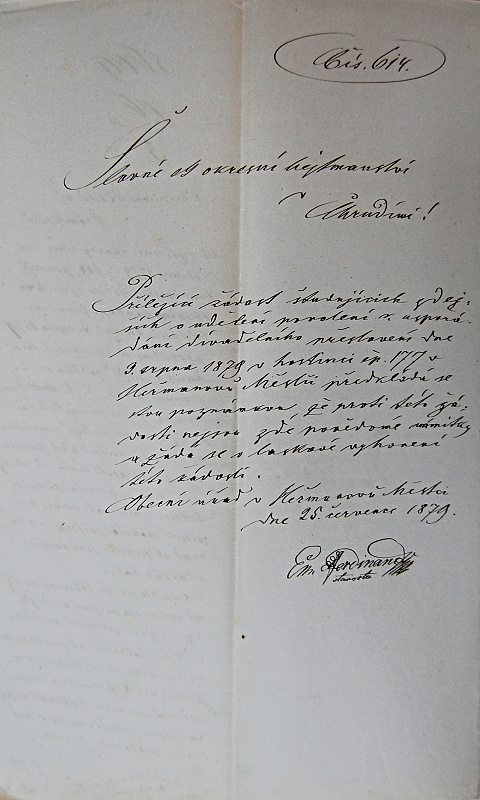 Čís. 614.
Slavné c k okresní hejtmanství
v Chrudimi!
Přiležící žádost študujících zdej-
ších o udělení povolení k uspořá-
dání divadelního představení dne
3. srpna 1879 v hostinci čp. 177 v
Heřmanově Městci předkládá se
s tou poznámkou, že proti této žá-
dosti nejsou zde povědomé námitky
a žádá se o laskavé vyhovění
této žádosti.
Obecní úřad v Heřmanově Městci
dne 25. července 1879.
Em. Ferdinand
starosta